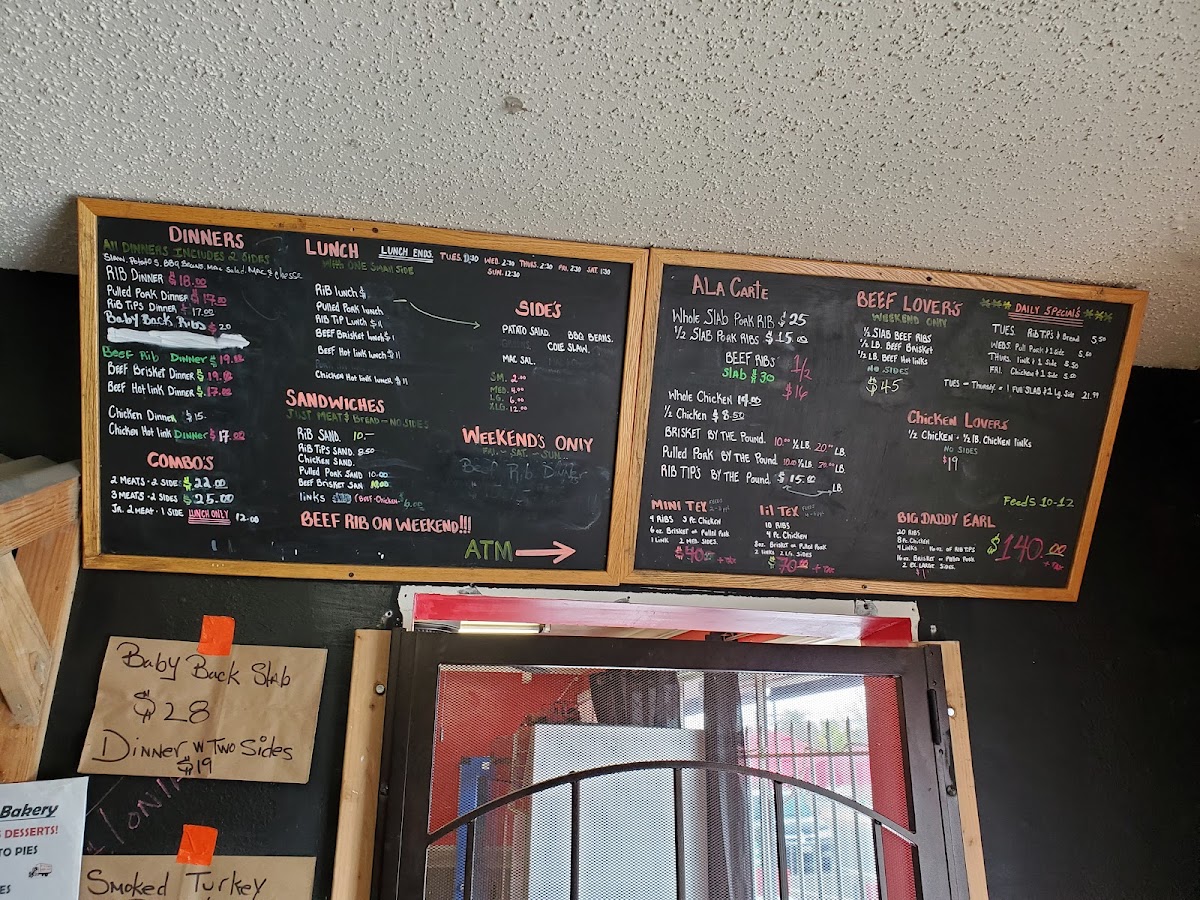 DINNERS
All DINNERS INCLUDES 2 SIDES
RIB DINNER $18.00
Pulled Pork Dinner $17.00
RIB TIPS DINNER $17.00
Baby Back Ribs $20
BEEF RIB DINNER $19.
BEEF Brisket DINNER $19.
BEEF Hot link DINNER $17.00
Chicken Dinner $15.
Chicken Hot link Dinner $17.00
COMBO'S
2 MEATS - 2 SIDES $22.00
3 MEATS - 2 SIDES $25.00
JR. 2 MEAT - 1 SIDE LUNCH ONLY 12.00
LUNCH
WITH ONE SMALL SIDE
LUNCH ENDS. TUES. WED. 2:30 THURS. 2:30 FRI. 2:30 SAT. 1:30
SUN. 12:30
RIB lunch $
Pulled Pork lunch
RIB TIP LUNCH $11
BEEF Brisket lunch $
BEEF Hot link lunch $11
Chicken Hot link lunch $11
SANDWICHES
JUST MEAT & BREAD - NO SIDES
RIB SAND. 10.-
RIB TIPS SAND. 8.50
Chicken SAND.
Pulled Pork SAND 10.00
BEEF Brisket SAN
links
BEEF RIB ON WEEKEND!!!
SIDE'S
PATATO SALAD. BBQ BEANS.
COLE SLAW.
MAC SAL.
SM. 2.00
MED. 4.00
LG. 6.00
XLG. 12.00
WEEKEND'S ONLY
FRI. - SAT. - SUN.
Beef Rib Dinner
ATM
ALA CARTE
Whole SLAB PORK RIB $25
1/2 SLAB PORK RIBS $15.00
BEEF RIBS 1/2
SLAB $30 $16
Whole Chicken 14.00
1/2 Chicken $8.50
BRISKET BY THE POUND. 10.00 1/2 LB. 20.00 LB.
Pulled Pork BY THE POUND 10.00 1/2 LB 20.00 LB.
RIB TIPS BY THE POUND $15.00 LB.
BEEF LOVER'S
WEEKEND ONLY
1/2 SLAB BEEF RIBS
1/2 LB. BEEF Brisket
1/2 LB. BEEF Hot links
NO SIDES
$45
DAILY SPECIALS
TUES. RIB TIPS & Bread 5.50
WEDS. Pull Pork & 1 Side 5.50
THURS. link & 1 Side 5.50
FRI. Chicken & 1 Side 5.50
TUES - Thursday = 1 FUll SLAB & 2 Lg. Side 21.99
Chicken LOVERS
1/2 Chicken - 1/2 LB. Chicken links
NO SIDES
$19
MINI TEX
4 RIBS 3 Pc Chicken
6 oz. BRISKET or Pulled Pork
1 LINK 2 MED. SIDES.
+ TAX
lil TEX
10 RIBS
4 Pc. Chicken
8oz. BRISKET or Pulled Pork
2 links 2 LG. SIDES
$70.00 + TAX
Feeds 10-12
BIG DADDY EARL
20 RIBS
8 Pc. Chicken
4 Links 16 oz. OF RIB TIPS
16 oz. BRISKET or Pulled Pork
2 EX. LARGE SIDES.
$140.00
+ TAX
Baby Back Slab
$28
Dinner w Two Sides
$19
Bakery
DESSERTS!
TO PIES
Smoked Turkey